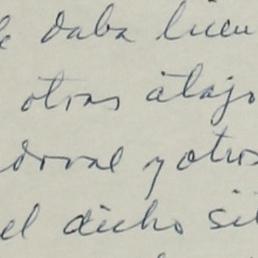 daba licen
otras atajo
doval y otros
el dicho si